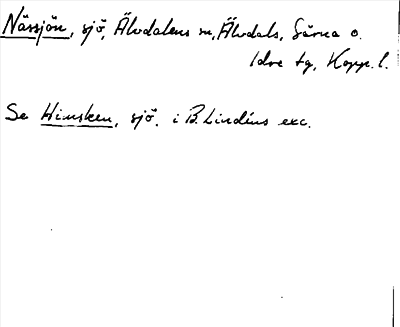 Nässjön, sjö, Älvdalens sn, Älvdals, Särna o.
Idre tg, Kopp. l.
Se Hinsken, sjö. i B. Lindéns exc.